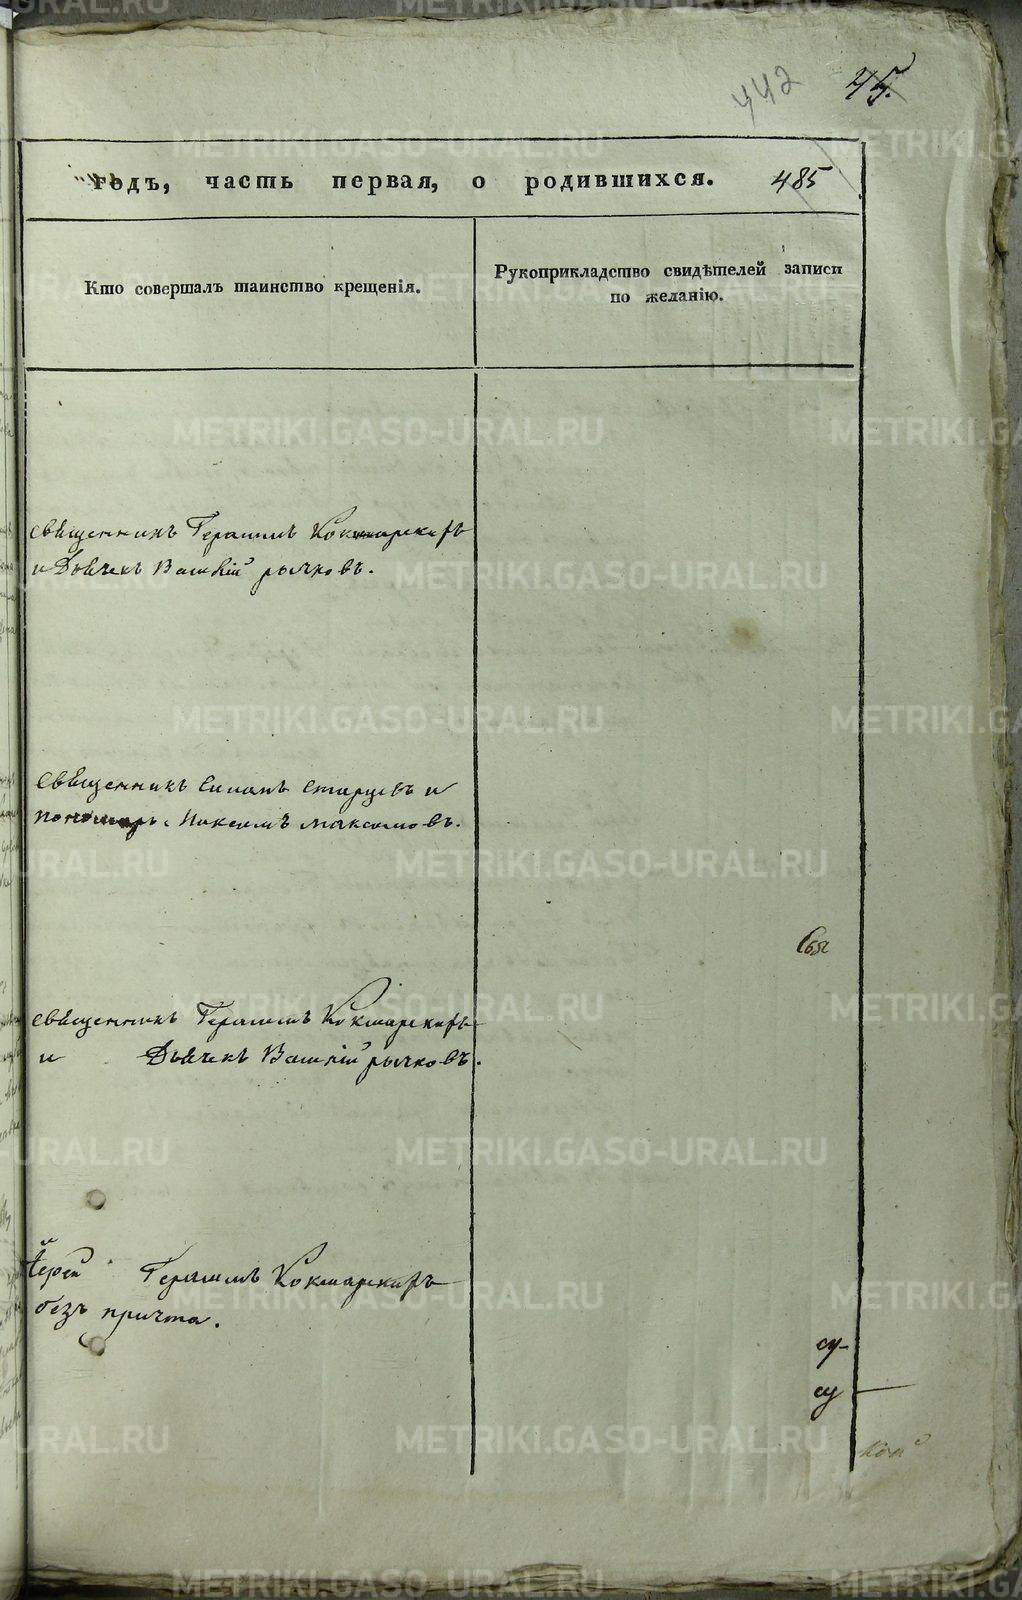 442 45.
годъ, часть первая, о родившихся. 485
Кто совершалъ таинство крещенія.
Рукоприкладство свидѣтелей записи
по желанію.
священникъ Герасимъ Кокшарскихъ
и Дьячекъ Василій рычковъ.
священникъ Симонъ Старцевъ и
пономарь Максимъ максимовъ.
священникъ Герасимъ Кокшарскихъ
и Дьячекъ Василій рычковъ.
Іерей Герасимъ Кокшарскихъ
безъ причта.
METRIKI.GASO-URAL.RU